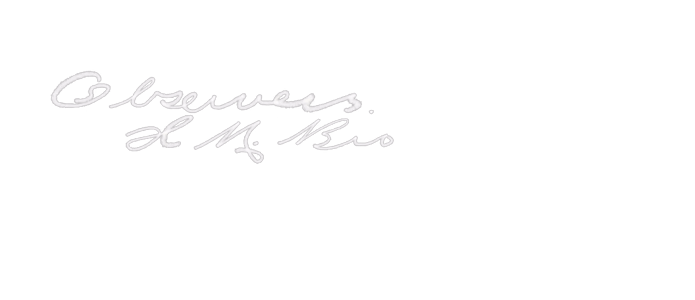 Observers.
H M. Bro